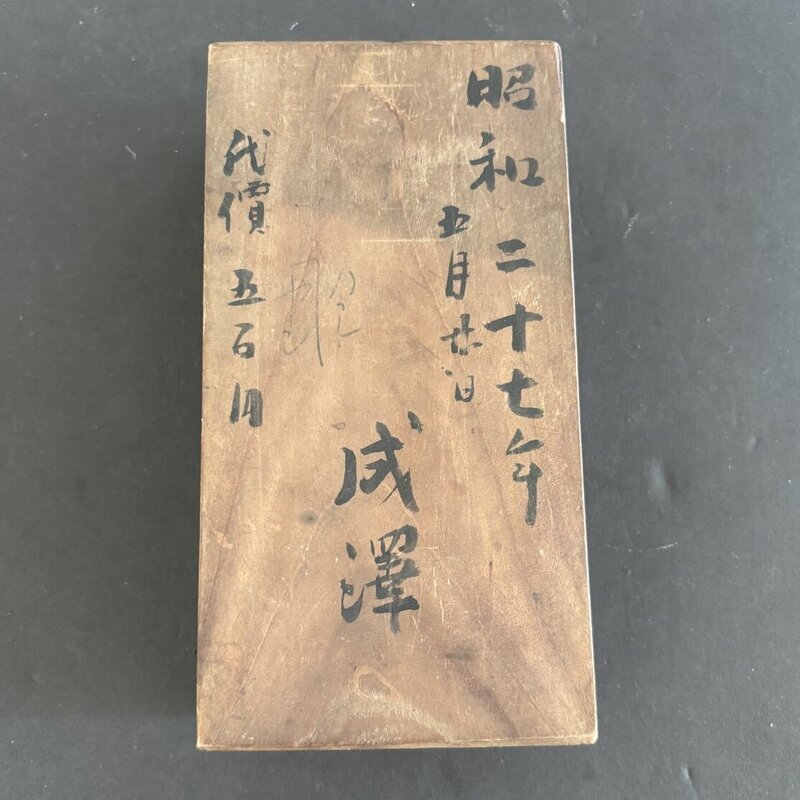 昭和二十七年
五月廿日
成澤
代價 五百円